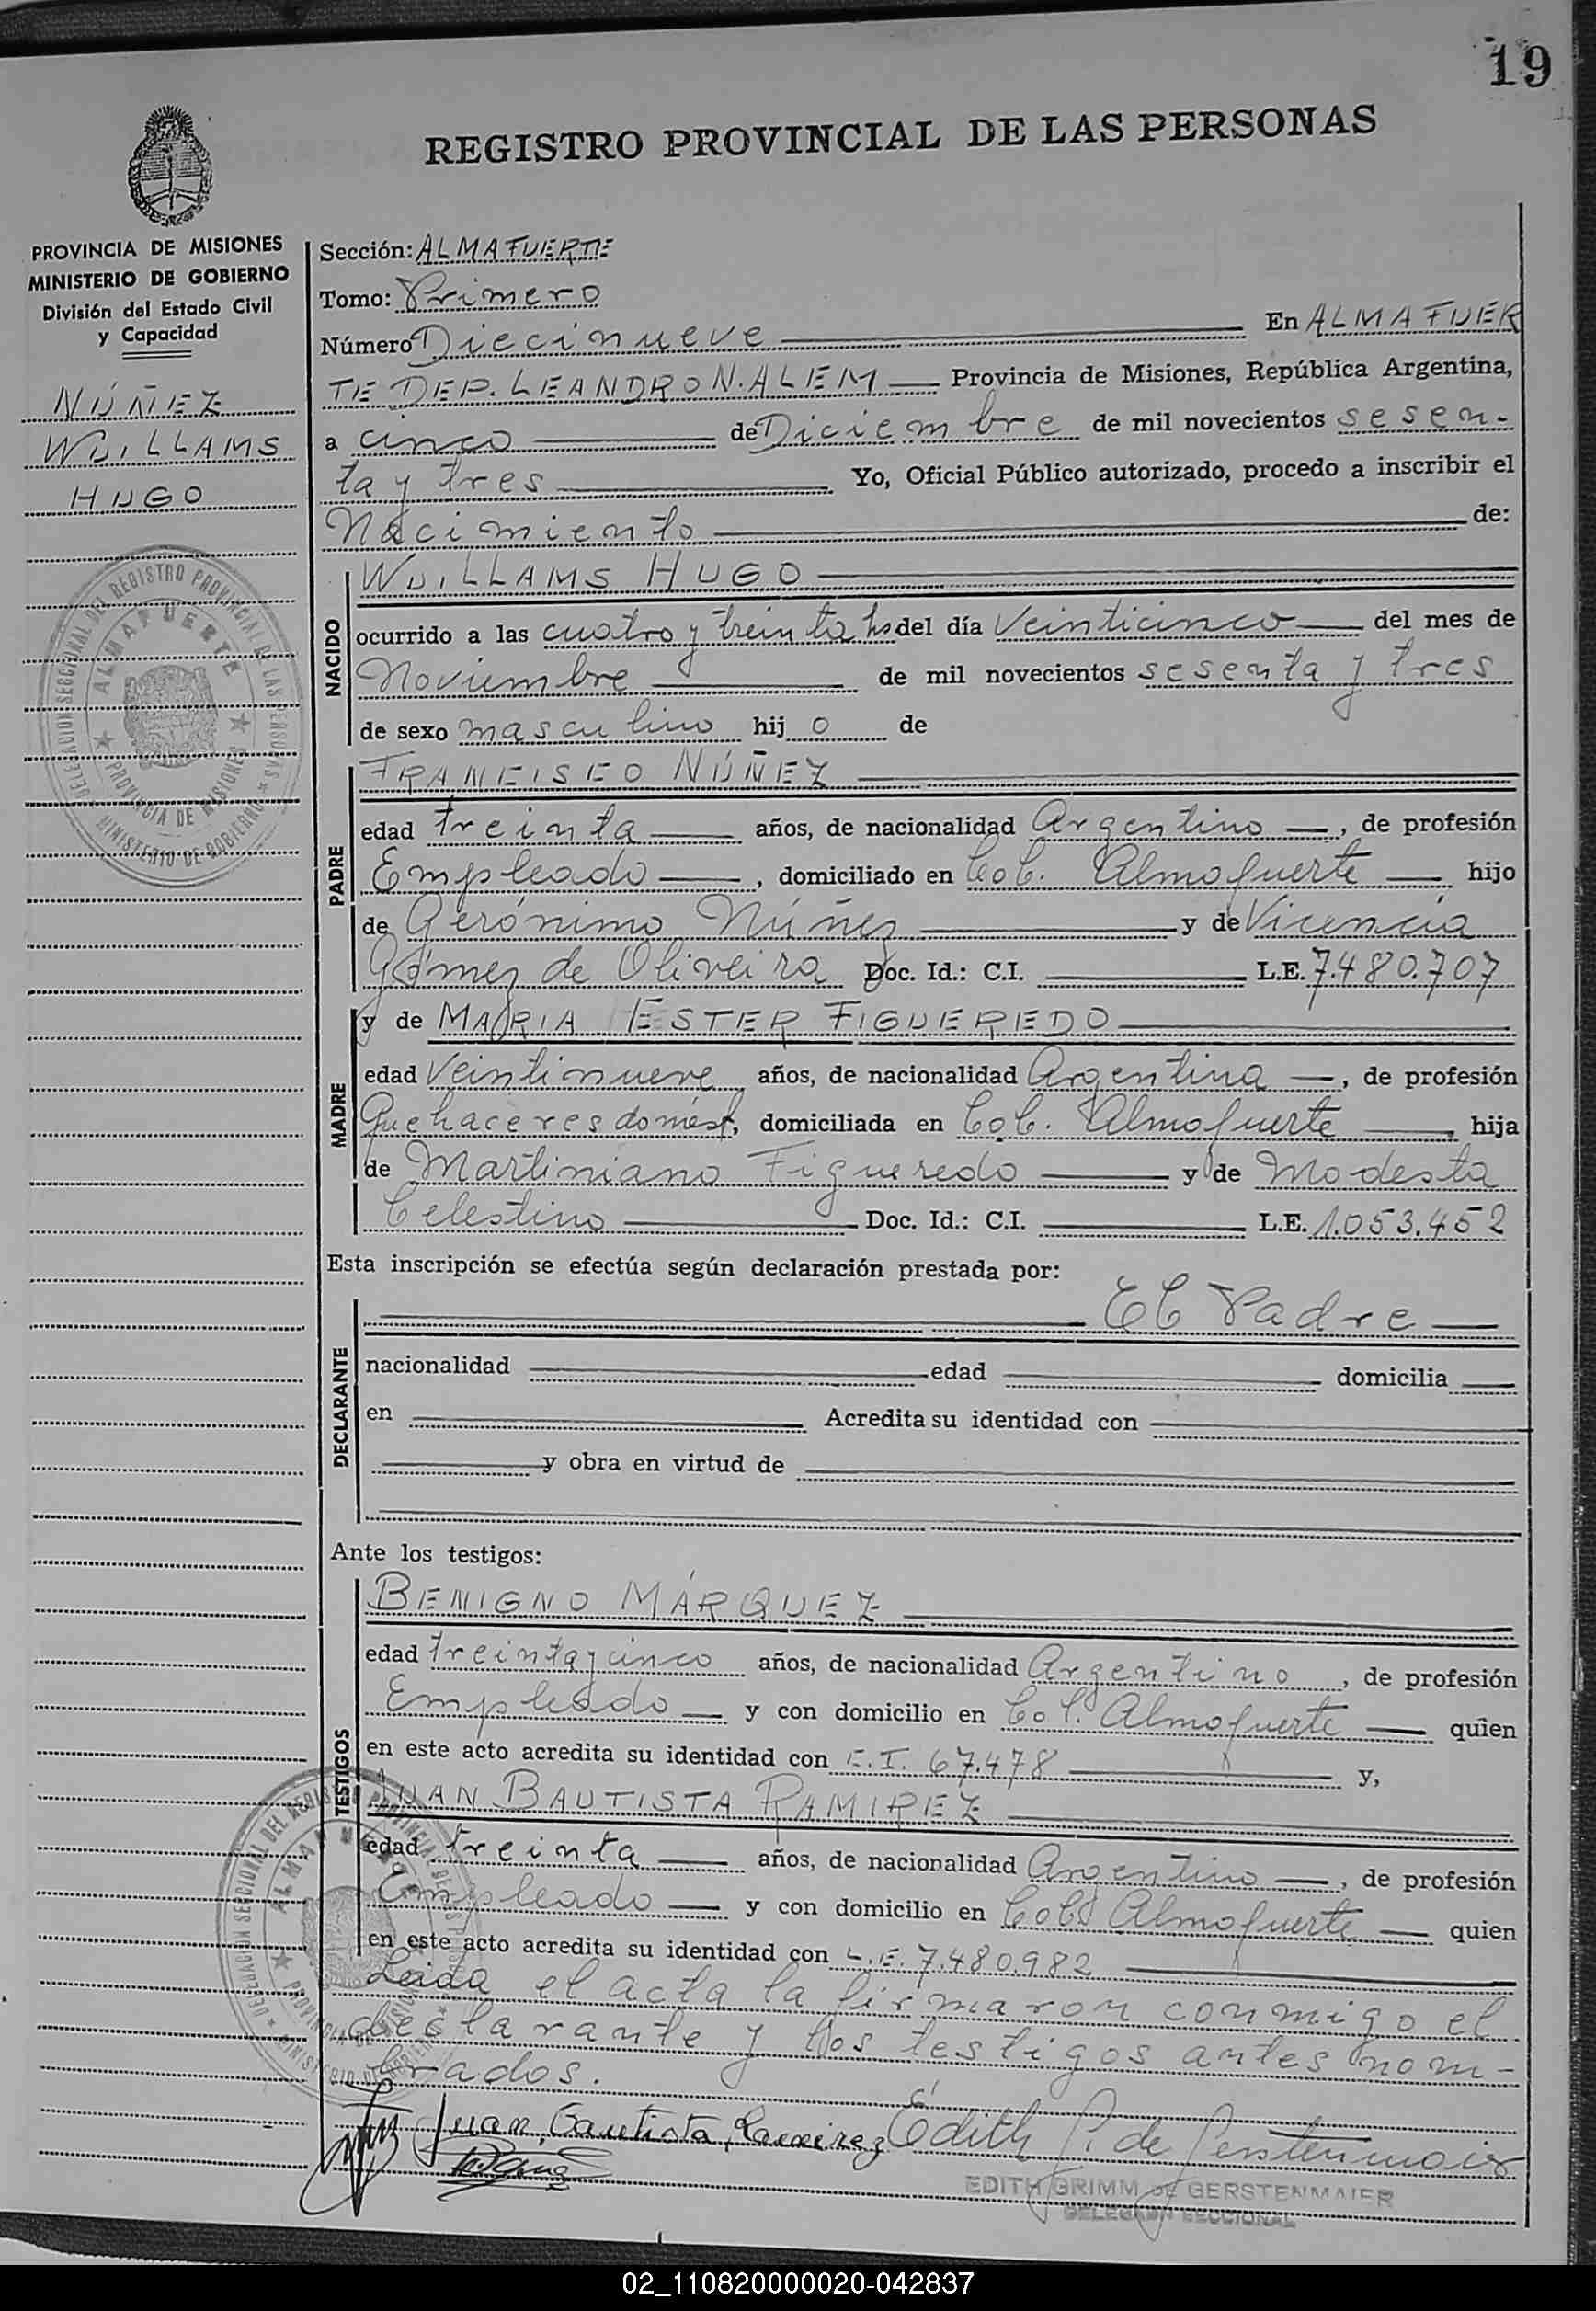 19
REGISTRO PROVINCIAL DE LAS PERSONAS
PROVINCIA DE MISIONES
MINISTERIO DE GOBIERNO
División del Estado Civil
y Capacidad
NÚÑEZ
WUILLAMS
HUGO
Sección: ALMAFUERTE
Tomo: Primero
Número Diecinueve En ALMAFUER
TE DEP. LEANDRO N. ALEM Provincia de Misiones, República Argentina,
a cinco de Diciembre de mil novecientos sesen-
ta y tres Yo, Oficial Público autorizado, procedo a inscribir el
Nacimiento de:
NACIDO
WUILLAMS HUGO
ocurrido a las cuatro y treinta hs del día Veinticinco del mes de
Noviembre de mil novecientos sesenta y tres
de sexo masculino hijo de
PADRE
FRANCISCO NÚÑEZ
edad treinta años, de nacionalidad Argentino, de profesión
Empleado, domiciliado en Col. Almafuerte hijo
de Gerónimo Núñez y de Vicencia
Gómez de Oliveira Doc. Id.: C.I. L.E. 7.480.707
MADRE
y de MARIA ESTER FIGUEREDO
edad Veintinueve años, de nacionalidad Argentina, de profesión
Quehaceres domést, domiciliada en Col. Almafuerte, hija
de Martiniano Figueredo y de Modesta
Celestino Doc. Id.: C.I. L.E. 1.053.452
Esta inscripción se efectúa según declaración prestada por:
DECLARANTE
El Padre
nacionalidad edad domicilia
en Acredita su identidad con
y obra en virtud de
Ante los testigos:
TESTIGOS
BENIGNO MÁRQUEZ
edad treinta y cinco años, de nacionalidad Argentino, de profesión
Empleado y con domicilio en Col. Almafuerte quien
en este acto acredita su identidad con C.I. 67.478 y,
JUAN BAUTISTA RAMIREZ
edad treinta años, de nacionalidad Argentino, de profesión
Empleado y con domicilio en Col. Almafuerte quien
en este acto acredita su identidad con L.E. 7.480.982
Leida el acta la firmaron conmigo el
declarante y los testigos antes nom-
brados.
Juan Bautista Ramirez Edith G. de Gerstenmaier
EDITH GRIMM DE GERSTENMAIER
DELEGADA SECCIONAL
DELEGACION SECCIONAL DEL REGISTRO PROVINCIAL DE LAS PERSONAS
MINISTERIO DE GOBIERNO
ALMAFUERTE
PROVINCIA DE MISIONES
02_110820000020-042837